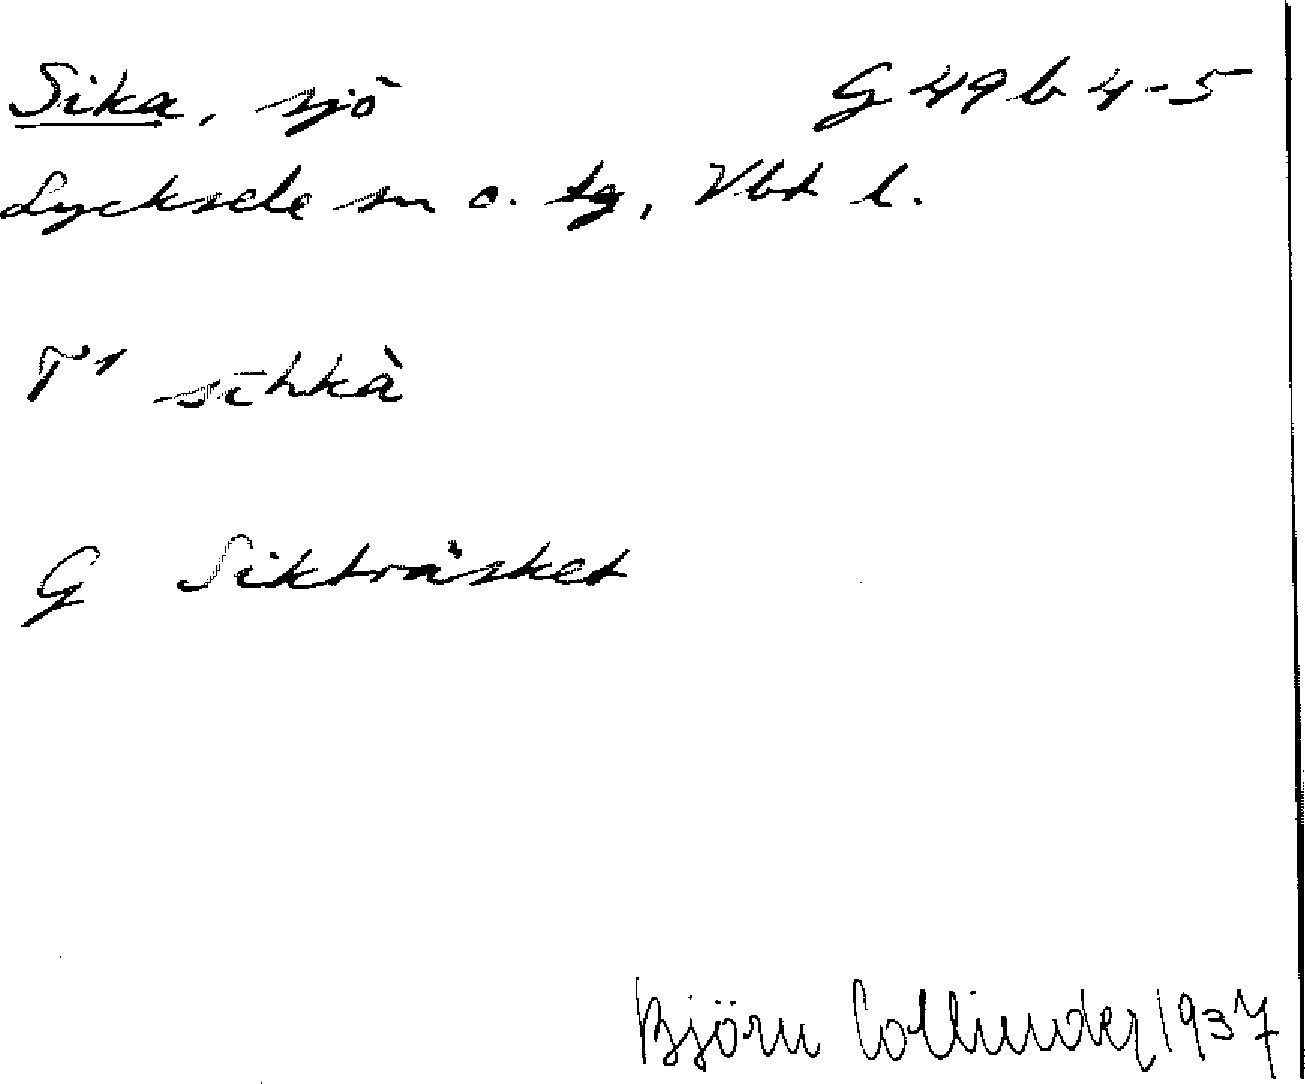 Sika, sjö G 49 b 4-5
Lycksele sn o. tg, Vbt l.
T¹ sīhkà
G Sikträsket
Björn Collinder 1937